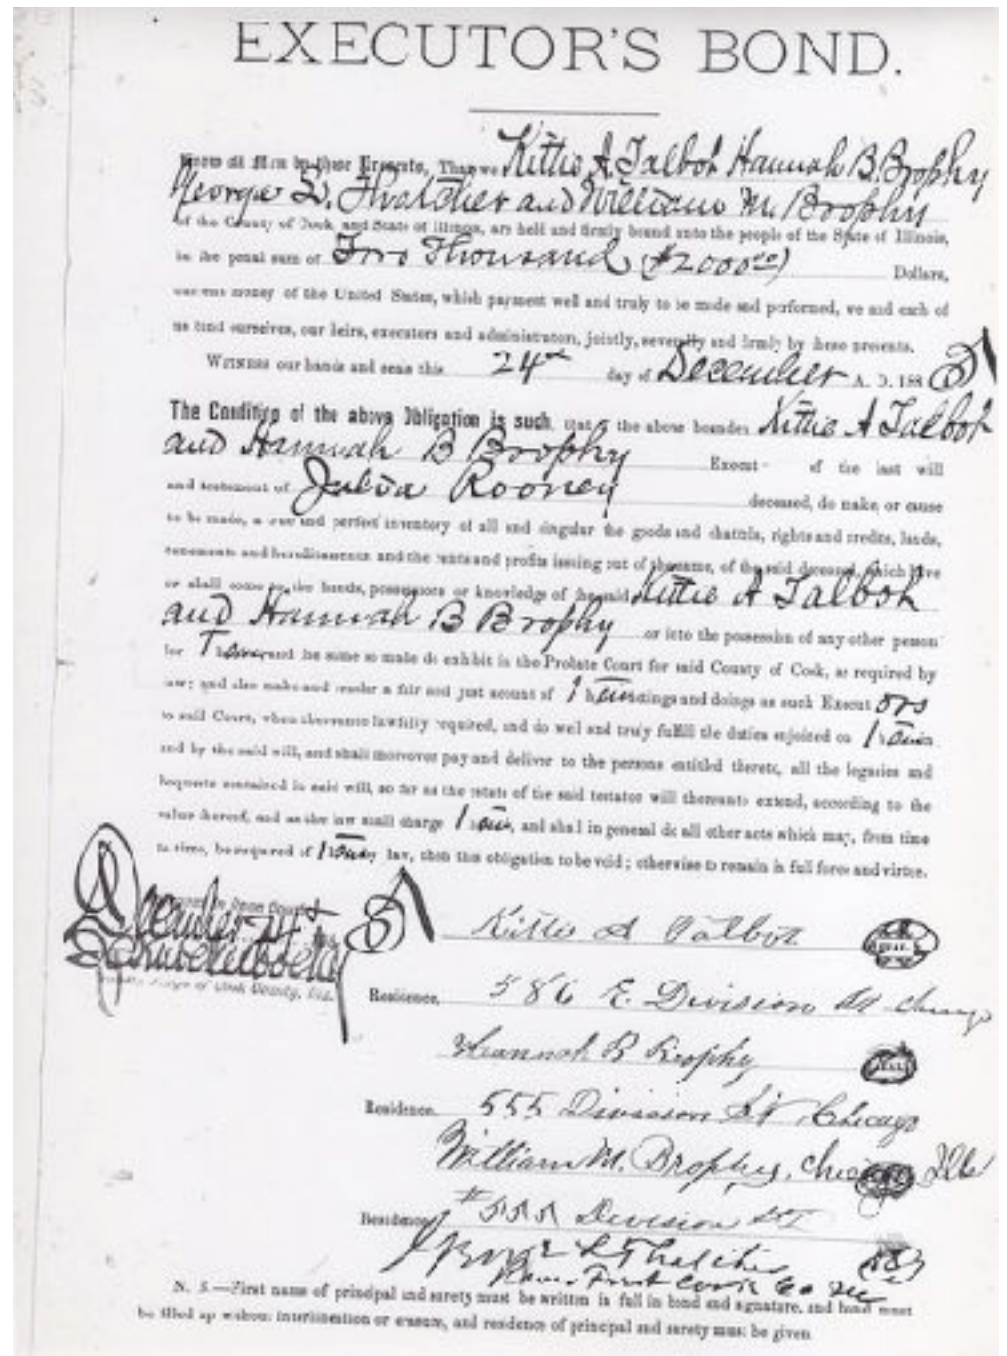 EXECUTOR'S BOND.
Know all Men by these Presents, That we Kittie A Talbot Hannah B. Brophy
George L. Thatcher and William M. Brophy
of the County of Cook, and State of Illinois, are held and firmly bound unto the people of the State of Illinois,
in the penal sum of Two Thousand ($2000.00) Dollars,
money of the United States, which payment well and truly to be made and performed, we and each of
us bind ourselves, our heirs, executors and administrators, jointly, severally and firmly by these presents.
WITNESS our hands and seals this 24th day of December A. D. 188
The Condition of the above Obligation is such, that if the above bounden Kittie A Talbot
and Hannah B Brophy Execut of the last will
and testament of Julia Rooney deceased, do make, or cause
to be made, a true and perfect inventory of all and singular the goods and chattels, rights and credits, lands,
tenements and hereditaments and the rents and profits issuing out of the same, of the said deceased, which have
or shall come to the hands, possession or knowledge of the said Kittie A Talbot
and Hannah B Brophy or into the possession of any other person
for Them and the same so made do exhibit in the Probate Court for said County of Cook, as required by
law; and also make and render a fair and just account of Their actings and doings as such Executors
to said Court, when thereunto lawfully required, and do well and truly fulfill the duties enjoined on Them
and by the said will, and shall moreover pay and deliver to the persons entitled thereto, all the legacies and
bequests contained in said will, so far as the estate of the said testator will thereunto extend, according to the
value thereof, and as the law shall charge Them, and shall in general do all other acts which may, from time
to time, be required of Them by law, then this obligation to be void; otherwise to remain in full force and virtue.
in Open Court
December 24
Judge of Cook County, Ills.
Kittie A Talbot SEAL
Residence, 586 E. Division St Chicago
Hannah B Brophy SEAL
Residence, 555 Division St Chicago
William M. Brophy, Chicago Ills
Residence # 555 Division St
George L Thatcher
River Forest Cook Co Ill
N. B.—First name of principal and surety must be written in full in bond and signature, and bond must
be filled up without interlineation or erasure, and residence of principal and surety must be given